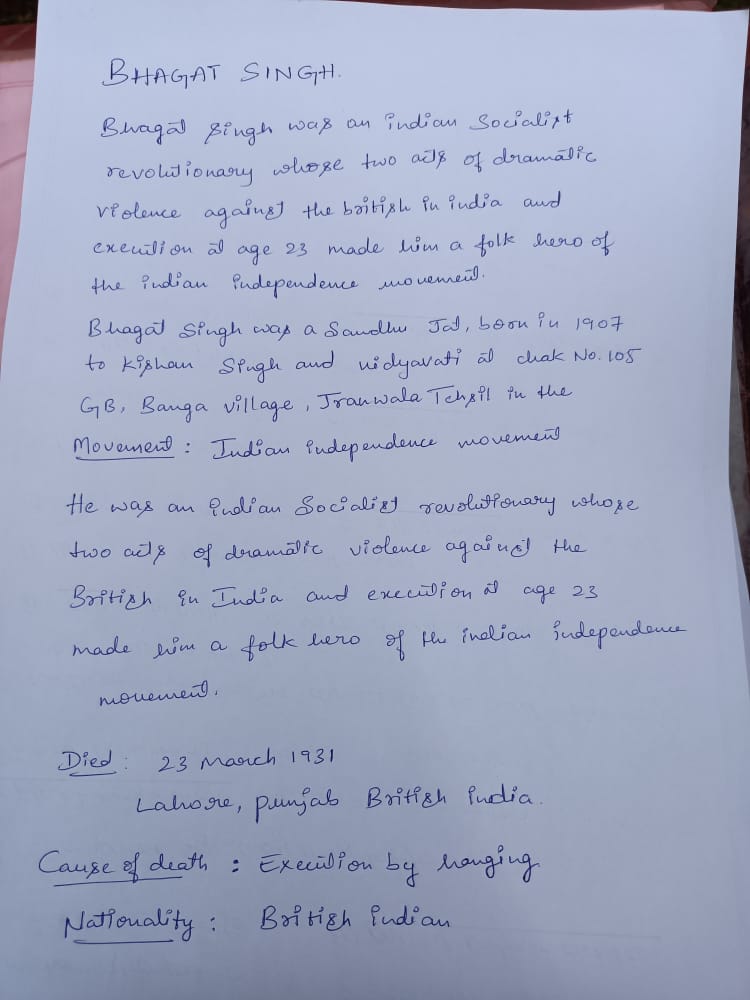 BHAGAT SINGH.
Bhagat Singh was an indian Socialist
revolutionary whose two acts of dramatic
violence against the british in india and
execution at age 23 made him a folk hero of
the indian independence movement.
Bhagat Singh was a Sandhu Jat, born in 1907
to Kishan Singh and vidyavati at chak No. 105
GB, Banga village, Jranwala Tehsil in the
Movement : Indian independence movement
He was an indian Socialist revolutionary whose
two acts of dramatic violence against the
British in India and execution at age 23
made him a folk hero of the indian independence
movement.
Died : 23 March 1931
Lahore, punjab British india.
Cause of death : Execution by hanging
Nationality : British indian